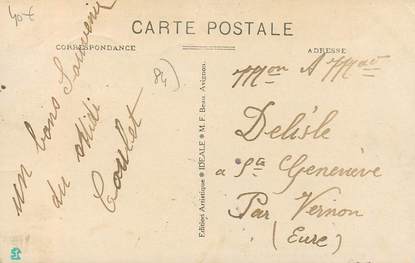 CARTE POSTALE
CORRESPONDANCE
ADRESSE
un bons Souvenir
du Midi
Coulet
Edition Artistique ★ IDEALE ★ M. F. Beau, Avignon.
Mon A Mav
Delisle
a Ste Geneviève
Par Vernon
(Eure)